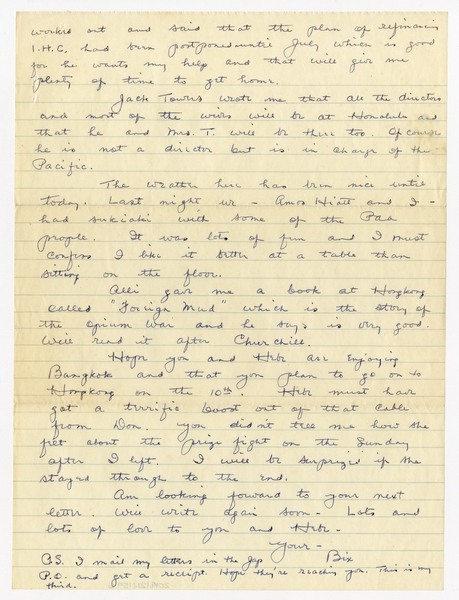 worked out and said that the plan of refinancing
I.H.C. had been postponed until July which is good
for he wants my help and that will give me
plenty of time to get home.
Jack Towers wrote me that all the directors
and most of the wives will be at Honolulu and
that he and Mrs. T. will be there too. Of course
he is not a director but is in charge of the
Pacific.
The weather here has been nice until
today. Last night we - Amos Hiatt and I -
had sukiaki with some of the Paa
people. It was lots of fun and I must
confess I like it better at a table than
sitting on the floor.
Alli gave me a book at Hongkong
called "Foreign Mud" which is the story of
the Opium War and he says is very good.
We'll read it after Churchill.
Hope you and Hrbr are enjoying
Bangkok and that you plan to go on to
Hongkong on the 10th. Hrbr must have
got a terrific boost out of that cable
from Don. You didn't tell me how the
felt about the prize fight on the Sunday
after I left. I will be surprized if she
stayed through to the end.
Am looking forward to your next
letter. Will write again soon - Lots and
lots of love to you and Hrbr -
Your -
Bix
P.S. I mail my letters in the Jap
P.O. and get a receipt. Hope they're reaching you. This is my
third.